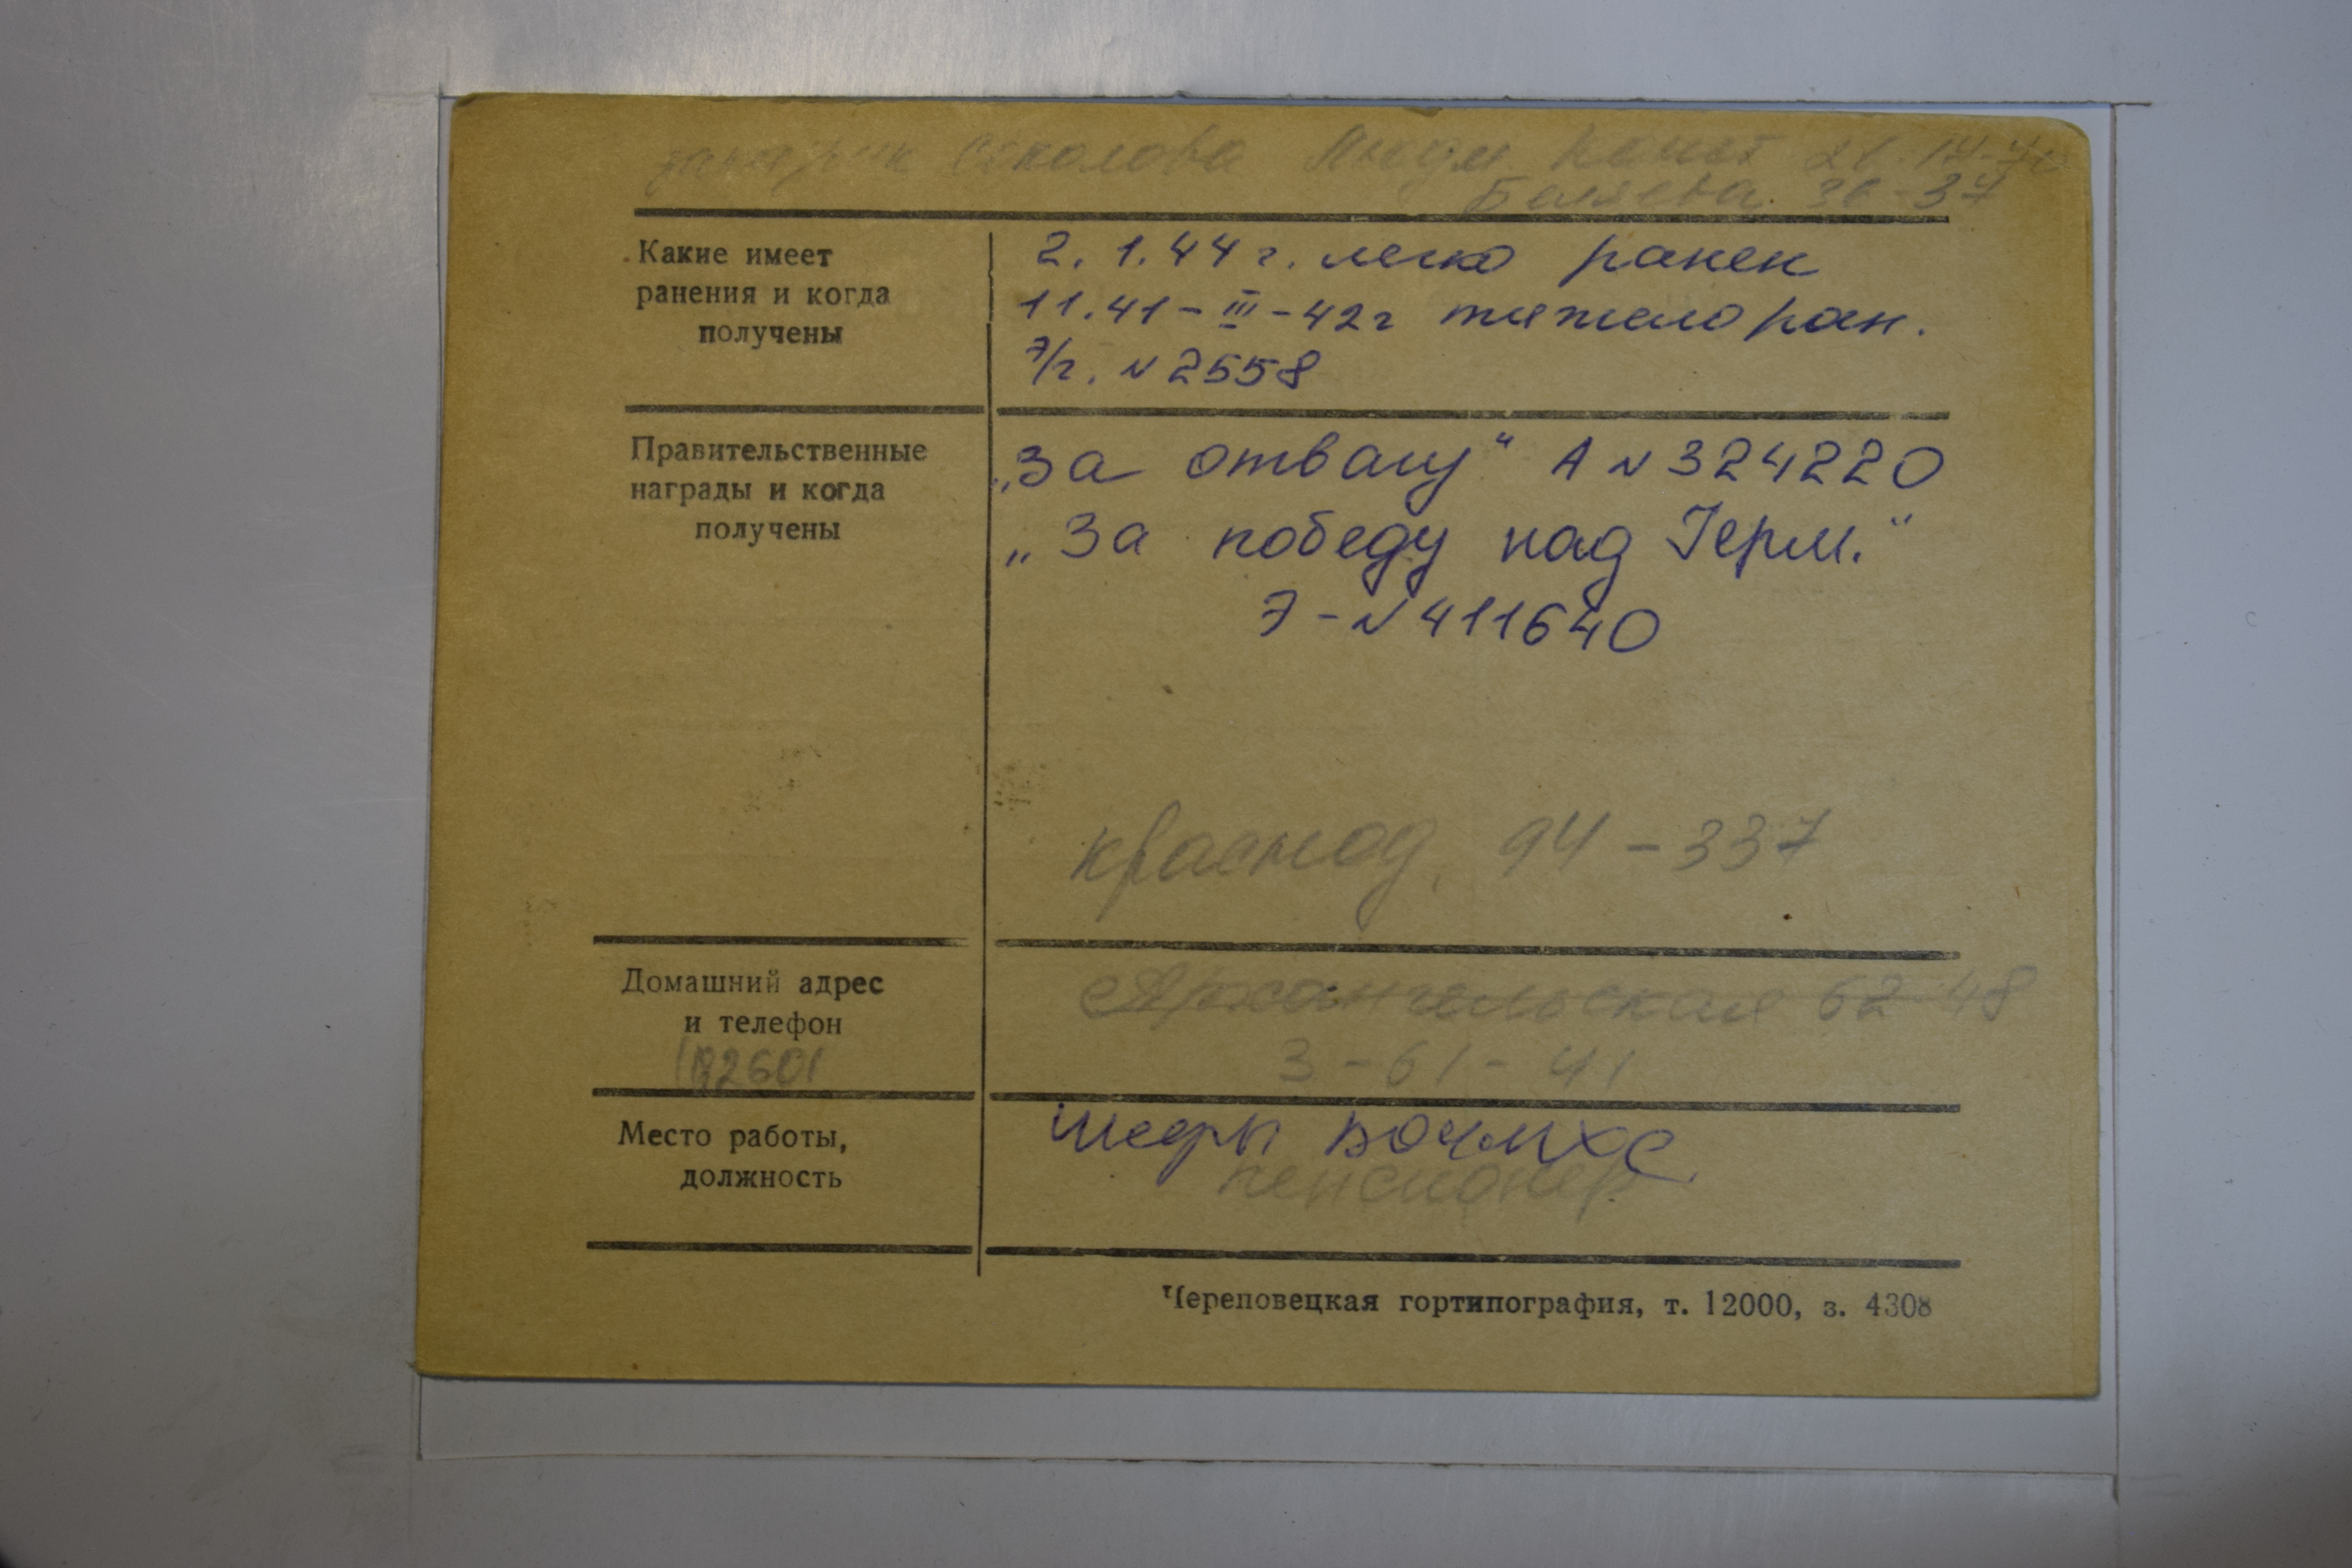 Соколова
Беляева 36-37
Какие имеет
ранения и когда
получены
2. 1. 44 г. легко ранен
11. 41 - III - 42 г тяжело ран.
э/г. N 2558
Правительственные
награды и когда
получены
„За отвагу“ А N 324220
„За победу над Герм.“
Э - N 411640
краснод. 94 - 337
Домашний адрес
и телефон
Архангельская 62 48
3 - 61 - 41
Место работы,
должность
пенсионер
Череповецкая гортипография, т. 12000, з. 4308